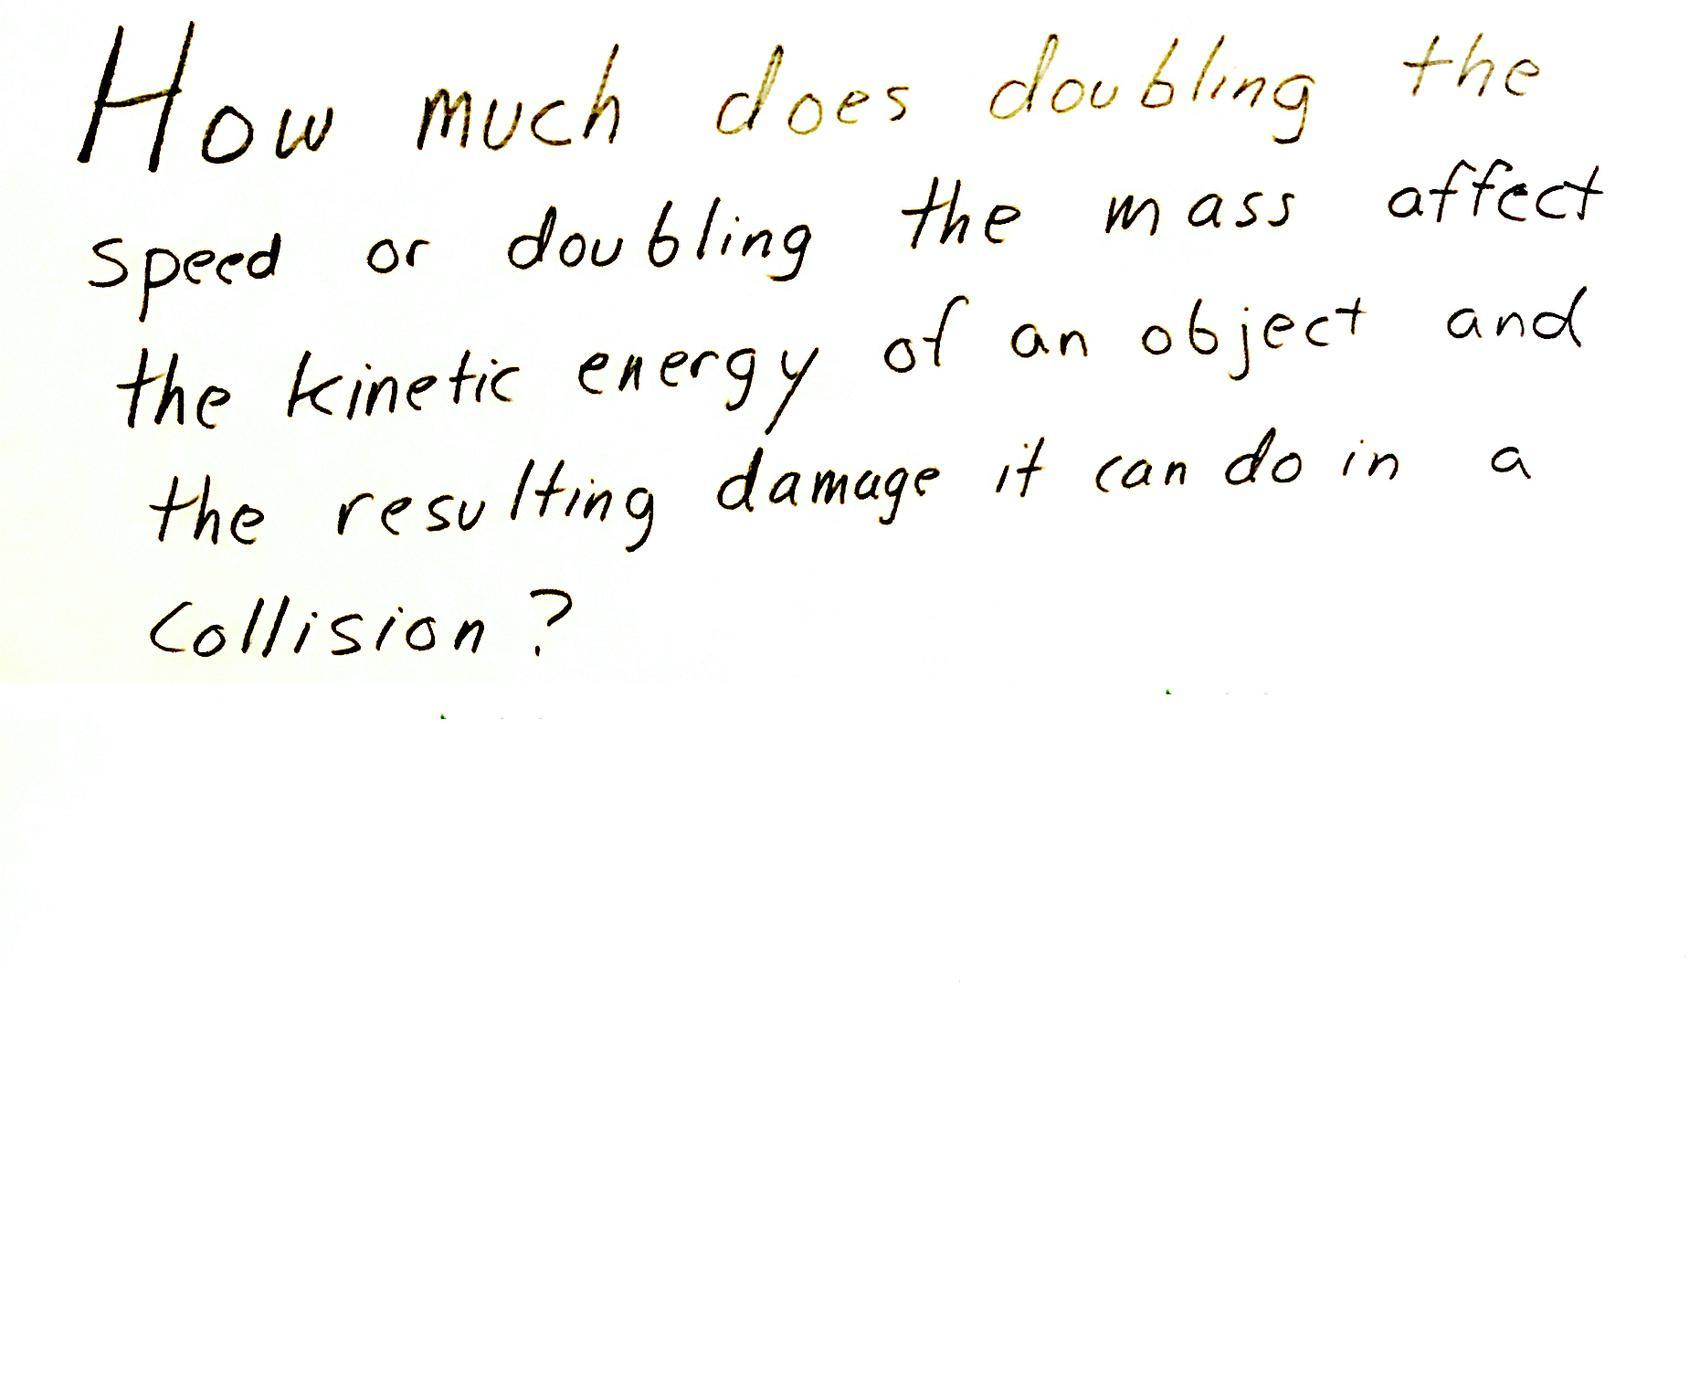 How much does doubling the
speed or doubling the mass affect
the kinetic energy of an object and
the resulting damage it can do in a
collision?